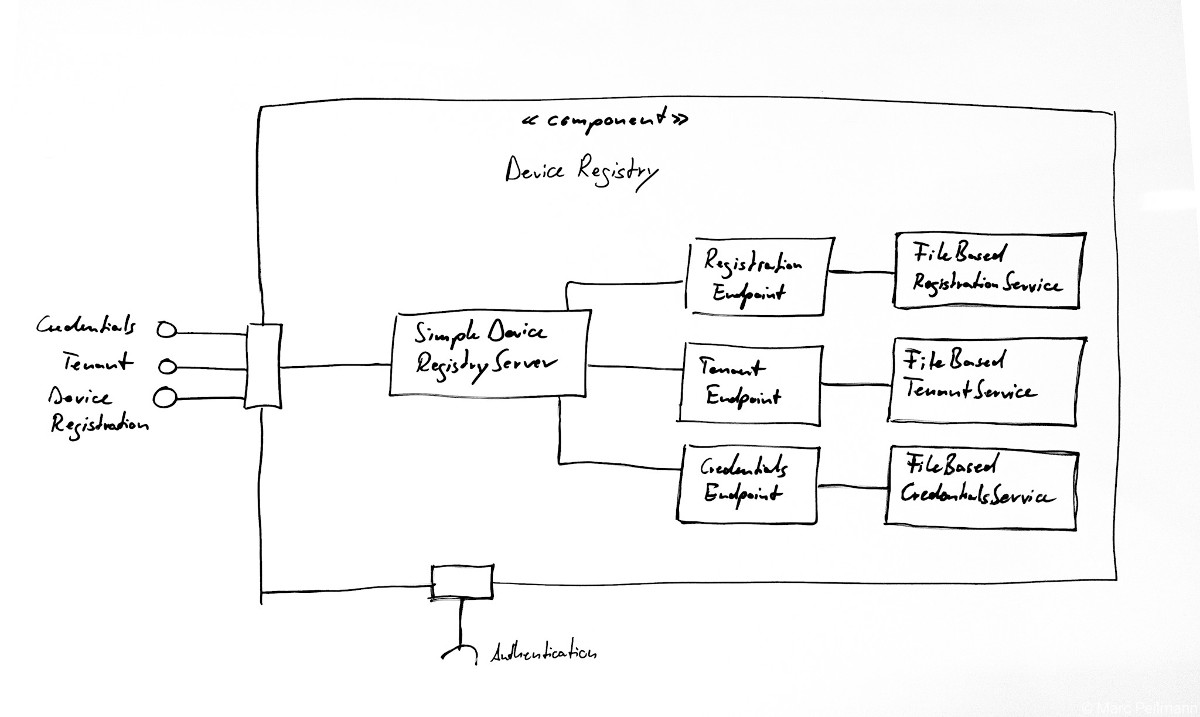 «component»
Device Registry
Credentials
Tenant
Device
Registration
Simple Device
Registry Server
Registration
Endpoint
FileBased
RegistrationService
Tenant
Endpoint
FileBased
TenantService
Credentials
Endpoint
FileBased
CredentialsService
Authentication